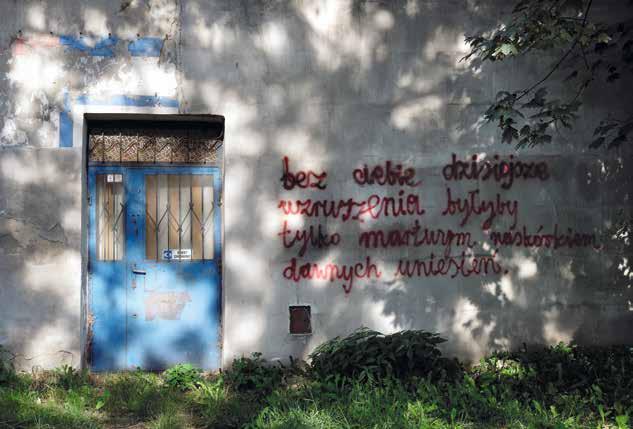 bez ciebie dzisiejsze
wzruszenia byłyby
tylko martwym naskórkiem
dawnych uniesień.